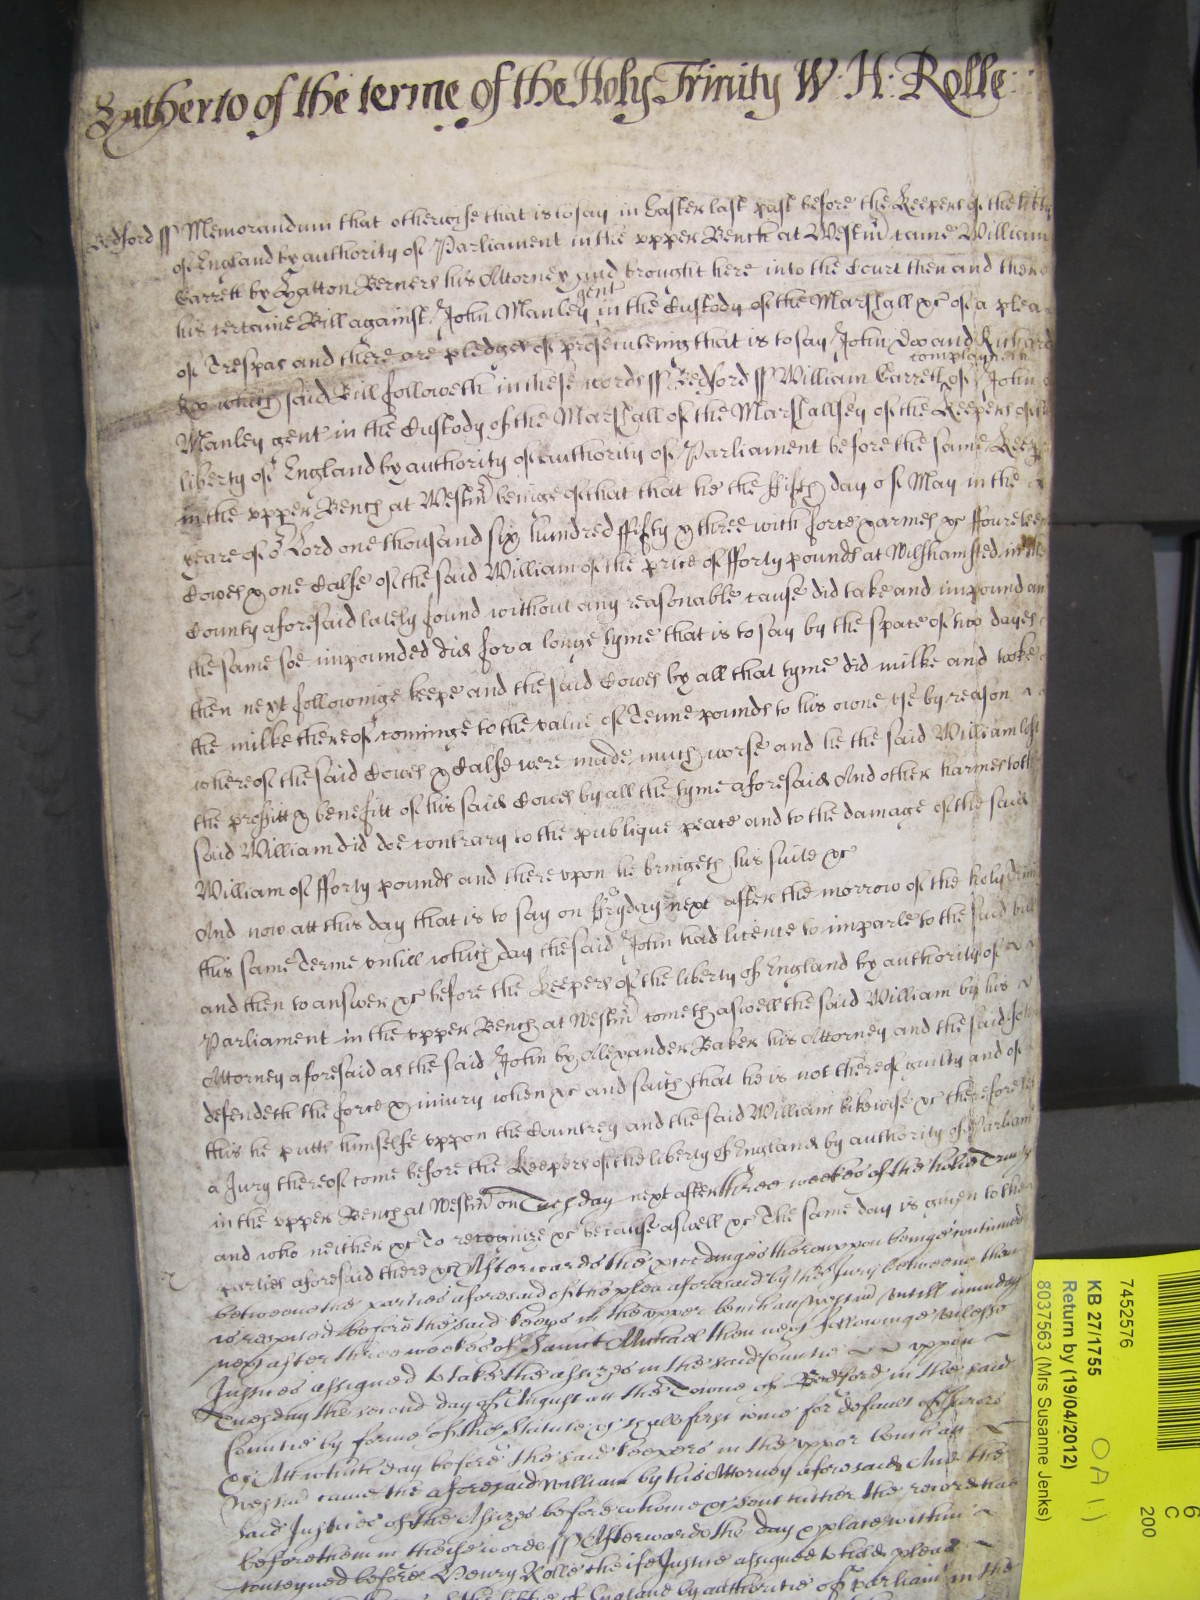 Hitherto of the terme of the Holy Trinity W: H: Rolle
Bedford ss Memorandum that otherwise that is to say in Easter last past before the Keepers of the lib
of England by authority of Parliament in the upper Bench at Westm came William
Garrett by Hatton Berners his Attorney and brought here into the Court then and there
his certaine Bill against John Manley gent in the Custody of the Marshall &c of a plea
of Trespas and there are pledges of prosecuteing that is to say John Doo and Richard
Roo which said Bill followeth in these words ss Bedford ss William Garrett complayneth of John
Manley gent in the Custody of the Marshall of the Marshallsey of the Keepers of the
liberty of England by authority of authority of Parliament before the same Keep
in the upper Bench at Westm beinge of that that he the ffifth day of May in the
yeare of or Lord one thousand six hundred ffifty & three with force & armes &c ffoureteen
Cowes & one Calfe of the said William of the price of fforty pounds at Wilshamsted in the
County aforesaid lately found without any reasonable cause did take and impound an
the same soe impounded did for a longe tyme that is to say by the space of two dayes
then next followinge keepe and the said Cowes by all that tyme did milke and tooke
the milke thereof cominge to the value of Tenne pounds to his owne use by reason
whereof the said Cowes & Calfe were made much worse and he the said William lost
the proffitt & benefitt of his said Cowes by all the tyme aforesaid And other harmes to the
said William did doe contrary to the publique peace and to the damage of the said
William of fforty pounds and there upon he bringeth his suite &c
And now att this day that is to say on ffryday next after the morrow of the holy Trini
this same Terme untill which day the said John had licence to imparle to the said bill
and then to answer &c before the Keepers of the liberty of England by authority of
Parliament in the upper Bench at Westm cometh aswell the said William by his
Attorney aforesaid as the said John by Alexander Baker his Attorney and the said John
defendeth the force & injury when &c and saith that he is not thereof guilty and of
this he putts himselfe uppon the Countrey and the said William likewise &c therefore let
a Jury thereof come before the Keepers of the liberty of England by authority of Parliam
in the upper Bench at Westm on Tuesday next after three weekes of the holie Trinity
and who neither &c To recognize &c because aswell &c The same day is given to the
parties aforesaid there &c Afterwards the proceedinges thereuppon beinge continued
betweene the parties aforesaid of the plea aforesaid by the Jury betweene them
is respited before the said keeps in the upper bench att Westm untill munday
next after three weekes of Saint Michael then next followinge unlesse
Justices assigned to take the assizes in the said Countie uppon
Tuesday the second day of August att the Towne of Bedford in the said
Countie by forme of the Statute &c shall first come for default of Jurors
&c Att which day before the said keepers in the upper bench att
Westm came the aforesaid William by his Attorney aforesaid And the
said Justices of the Assizes before whome &c sent hither the record had
before them in theise wordes ss Afterwards the day & place within
conteyned before Henry Rolle cheife Justice assigned to hold pleas
of England by authoritie of parliamt in the
7452576
KB 27/1755
Return by (19/04/2012)
8037563 (Mrs Susanne Jenks)
200